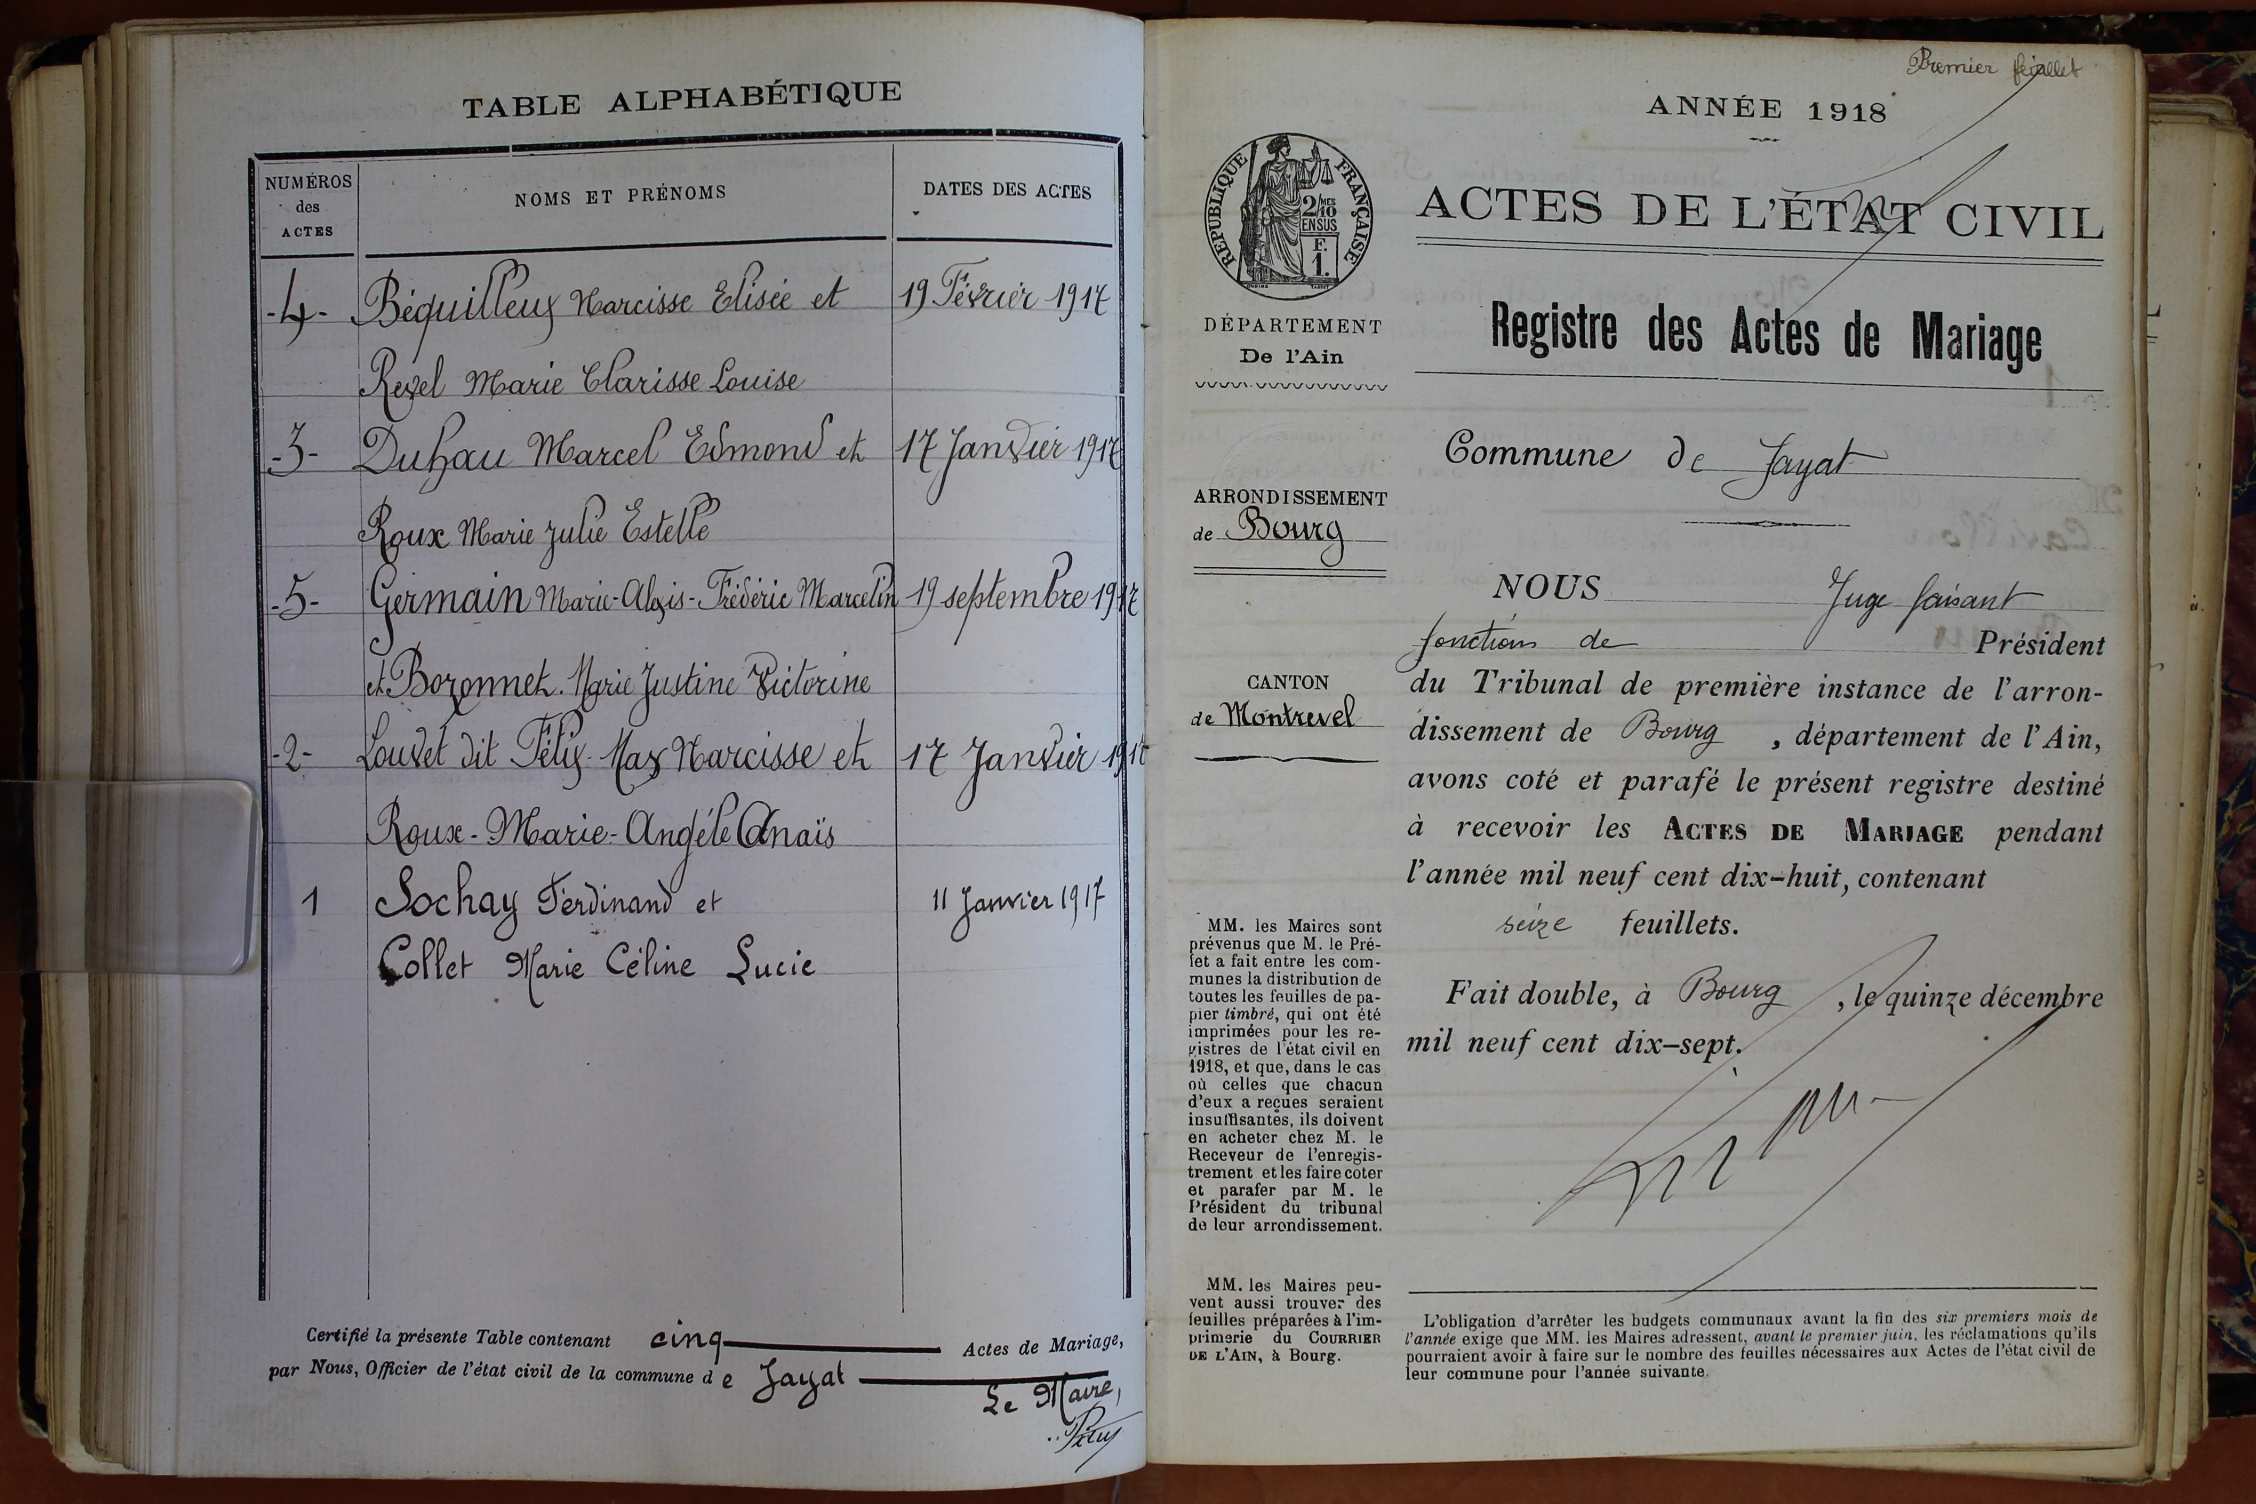 TABLE ALPHABÉTIQUE
NUMÉROS
des
ACTES
NOMS ET PRÉNOMS
DATES DES ACTES
-4- Béquilleux Narcisse Elisée et 19 Février 1917
Revel Marie Clarisse Louise
-3- Duhau Marcel Edmond et 17 Janvier 1917
Roux Marie Julie Estelle
-5- Germain Marie-Aloïs-Frédéric Marcelin 19 septembre 1917
et Bozonnet Marie Justine Victorine
-2- Louvet dit Félix Max Narcisse et 17 Janvier 1917
Roux-Marie-Angéle Anaïs
1 Sochay Ferdinand et 11 Janvier 1917
Collet Marie Céline Lucie
Certifié la présente Table contenant cinq Actes de Mariage,
par Nous, Officier de l'état civil de la commune de Jayat
Le Maire,
Premier feuillet
ANNÉE 1918
RÉPUBLIQUE FRANÇAISE
2/10 MES
EN SUS
F.
1.
ACTES DE L'ÉTAT CIVIL
Registre des Actes de Mariage
DÉPARTEMENT
De l'Ain
Commune de Jayat
ARRONDISSEMENT
de Bourg
CANTON
de Montrevel
NOUS Juge faisant
fonctions de Président
du Tribunal de première instance de l'arron-
dissement de Bourg, département de l'Ain,
avons coté et parafé le présent registre destiné
à recevoir les ACTES DE MARIAGE pendant
l'année mil neuf cent dix-huit, contenant
seize feuillets.
Fait double, à Bourg, le quinze décembre
mil neuf cent dix-sept.
MM. les Maires sont
prévenus que M. le Pré-
fet a fait entre les com-
munes la distribution de
toutes les feuilles de pa-
pier timbré, qui ont été
imprimées pour les re-
gistres de l'état civil en
1918, et que, dans le cas
où celles que chacun
d'eux a reçues seraient
insuffisantes, ils doivent
en acheter chez M. le
Receveur de l'enregis-
trement et les faire coter
et parafer par M. le
Président du tribunal
de leur arrondissement.
MM. les Maires peu-
vent aussi trouver des
feuilles préparées à l'im-
primerie du COURRIER
DE L'AIN, à Bourg.
L'obligation d'arrêter les budgets communaux avant la fin des six premiers mois de
l'année exige que MM. les Maires adressent, avant le premier juin, les réclamations qu'ils
pourraient avoir à faire sur le nombre des feuilles nécessaires aux Actes de l'état civil de
leur commune pour l'année suivante.